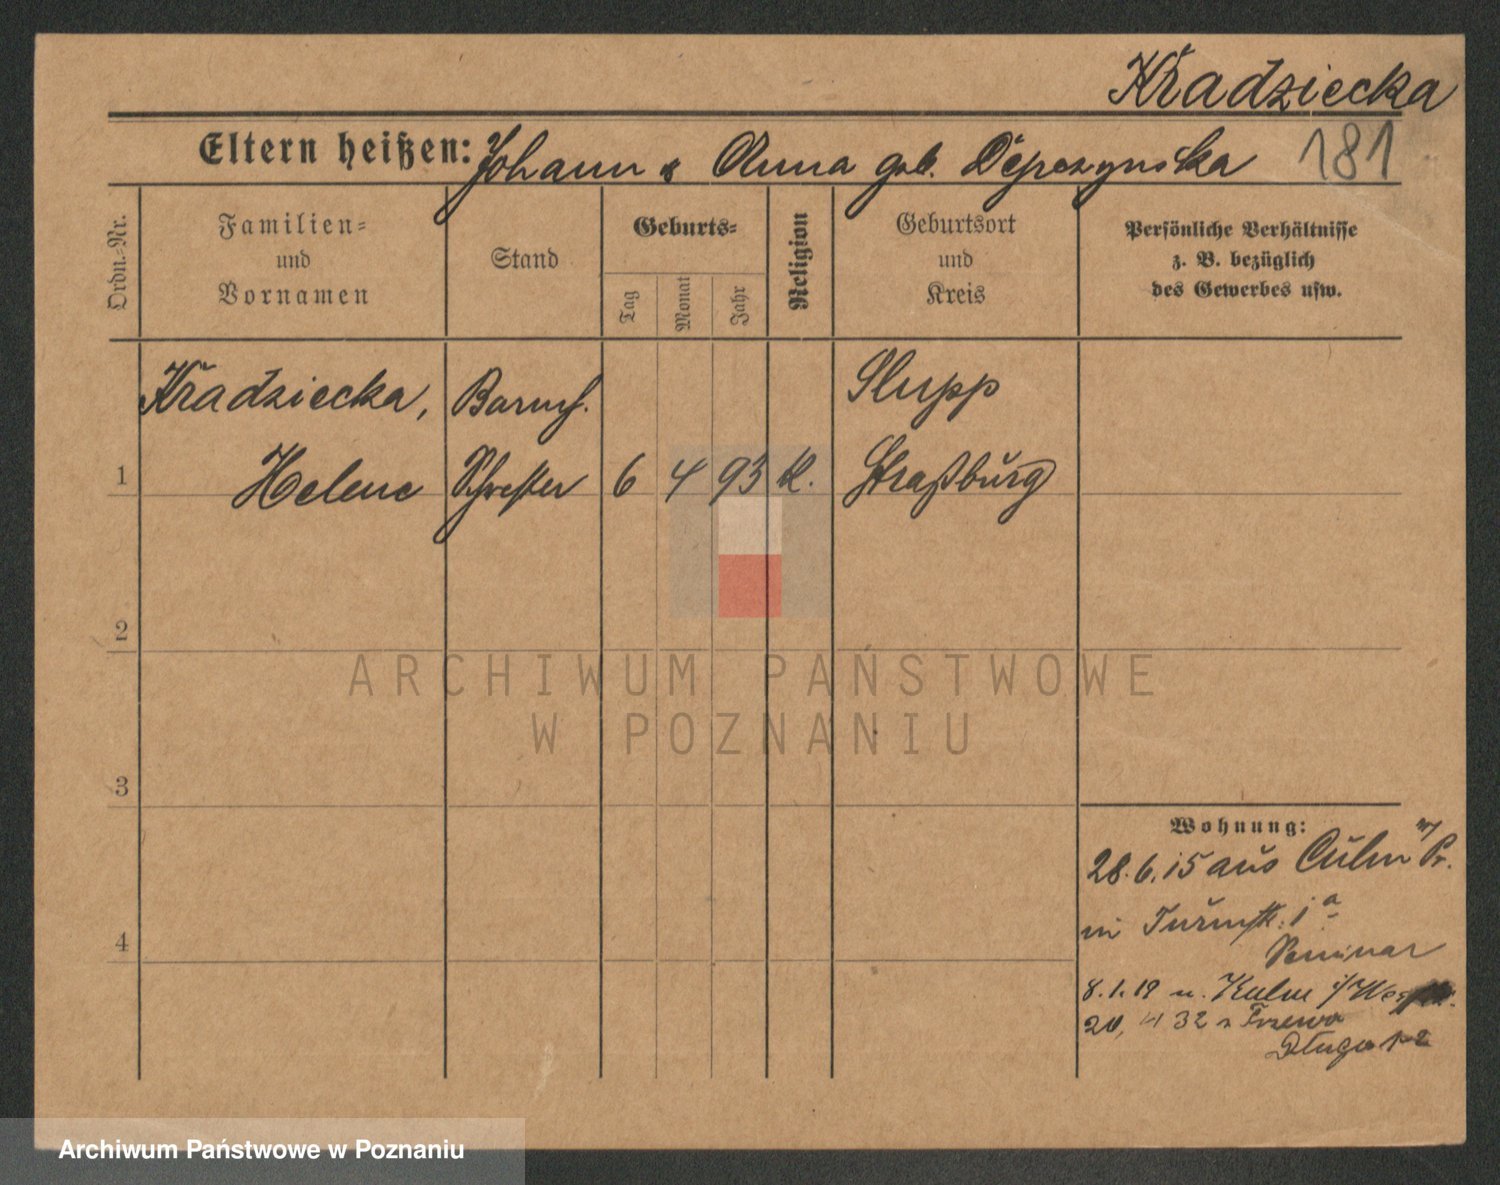 Kradziecka
Eltern heißen: Johann & Anna geb. Depczynska 181
Ordn.-Nr.
Familien=
und
Vornamen
Stand
Geburts=
Tag
Monat
Jahr
Religion
Geburtsort
und
Kreis
Persönliche Verhältnisse
z. B. bezüglich
des Gewerbes usw.
Kradziecka, Barmh. Slupp
1 Helene Schwester 6 4 93 k. Straßburg
2
3
4
Wohnung:
28.6.15 aus Culm W/Pr.
in 1a
Seminar
8.1.19 n. Kulm
20, 4 32 Trzewo
Długa 1-2
ARCHIWUM PAŃSTWOWE
W POZNANIU
Archiwum Państwowe w Poznaniu